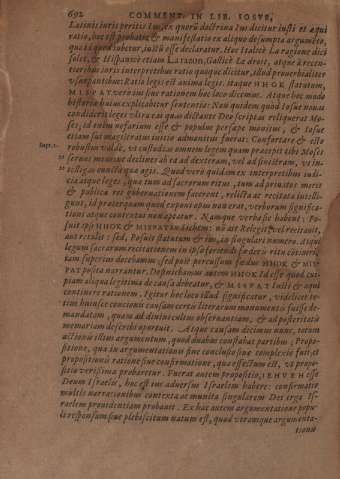 692 COMMENT. IN LIB. IOSVE,
Latinis iuris peritis Ius, ex quorũ doctrina Ius dicitur iusti et æqui
ratio, hoc est probatio & manifestatio ex aliquo desumpta argumẽto,
quo id quod iubetur, iustũ esse declaratur. Hoc Italicè La ragione dici
solet, & Hispanicè etiam LA RAZON, Gallicè Le droit, atque à recen-
tioribus iuris interpretibus ratio quoque dicitur, illud prouerbialiter
vsurpantibus: Ratio legis est anima legis. Itaque HHOK statutum,
MISPAT verò ius siue rationem hoc loco dicimus. Atque hoc modo
historia huius explicabitur sententia: Non quidem quòd Iosue nouas
condiderit leges vltra eas quas dictante Deo scriptas reliquerat Mo-
ses; id enim nefarium esse & populus persæpe monitus, & Iosue
etiam sui magistratus initio admonitus fuerat: Confortare & esto
robustus valde, vt custodias omnem legem quam præcepit tibi Moses
seruus meus: ne declines ab ea ad dexteram, vel ad sinistram, vt in-
telligas cuncta quæ agis. Quod verò quidem ex interpretibus iudi-
cia atque leges, quæ tum ad sacrorum ritus, tum ad priuatos mores
& publica rei gubernationem facerent, relicta ac recitata intelli-
gunt, id præterquam quod superuacuum erat, verborum significa-
tioni atque contextui non aptatur. Namque verba sic habent: Po-
suit ipsi HHOK & MISPAT in Sichem: nõ ait Relegit vel recitauit,
aut retulit: sed, Posuit statutum & ius, in singulari numero. Atqui
legum sacrarum recitationem in ipso feriendi fœderis ritu coniunc-
tam superius docebamus; sed post percussum fœdus HHOK & MIS-
PAT posita narrantur. Definiebamus autem HHOK Id esse quod cui-
piam aliqua legitima de causa debeatur, & MISPAT Iusti & æqui
continere rationem. Igitur hoc loco illud significatur, videlicet to-
tius huiusce concionis causam certis literarum monumentis fuisse de-
mandatam, quam ad diuini cultus obseruantiam, & ad posteritatis
memoriam describi oportuit. Atque causam dicimus nunc, totum
actionis illius argumentum, quod duabus constabat partibus; Propo-
sitione, quæ in argumentationis fine conclusio siue complexio fuit, et
propositionis ratione siue confirmatione, qua effectum est, vt propo-
sitio verissima probaretur. Fuerat autem propositio, IEHVEH esse
Deum Israelis, hoc est ius aduersus Israelem habere: confirmatio
multis narrationibus contexta ac munita singularem Dei erga Is-
raelem prouidentiam probauit. Ex hac autem argumentatione popu-
li responsum siue plebiscitum natum est, quod veramque argumenta-
tionis